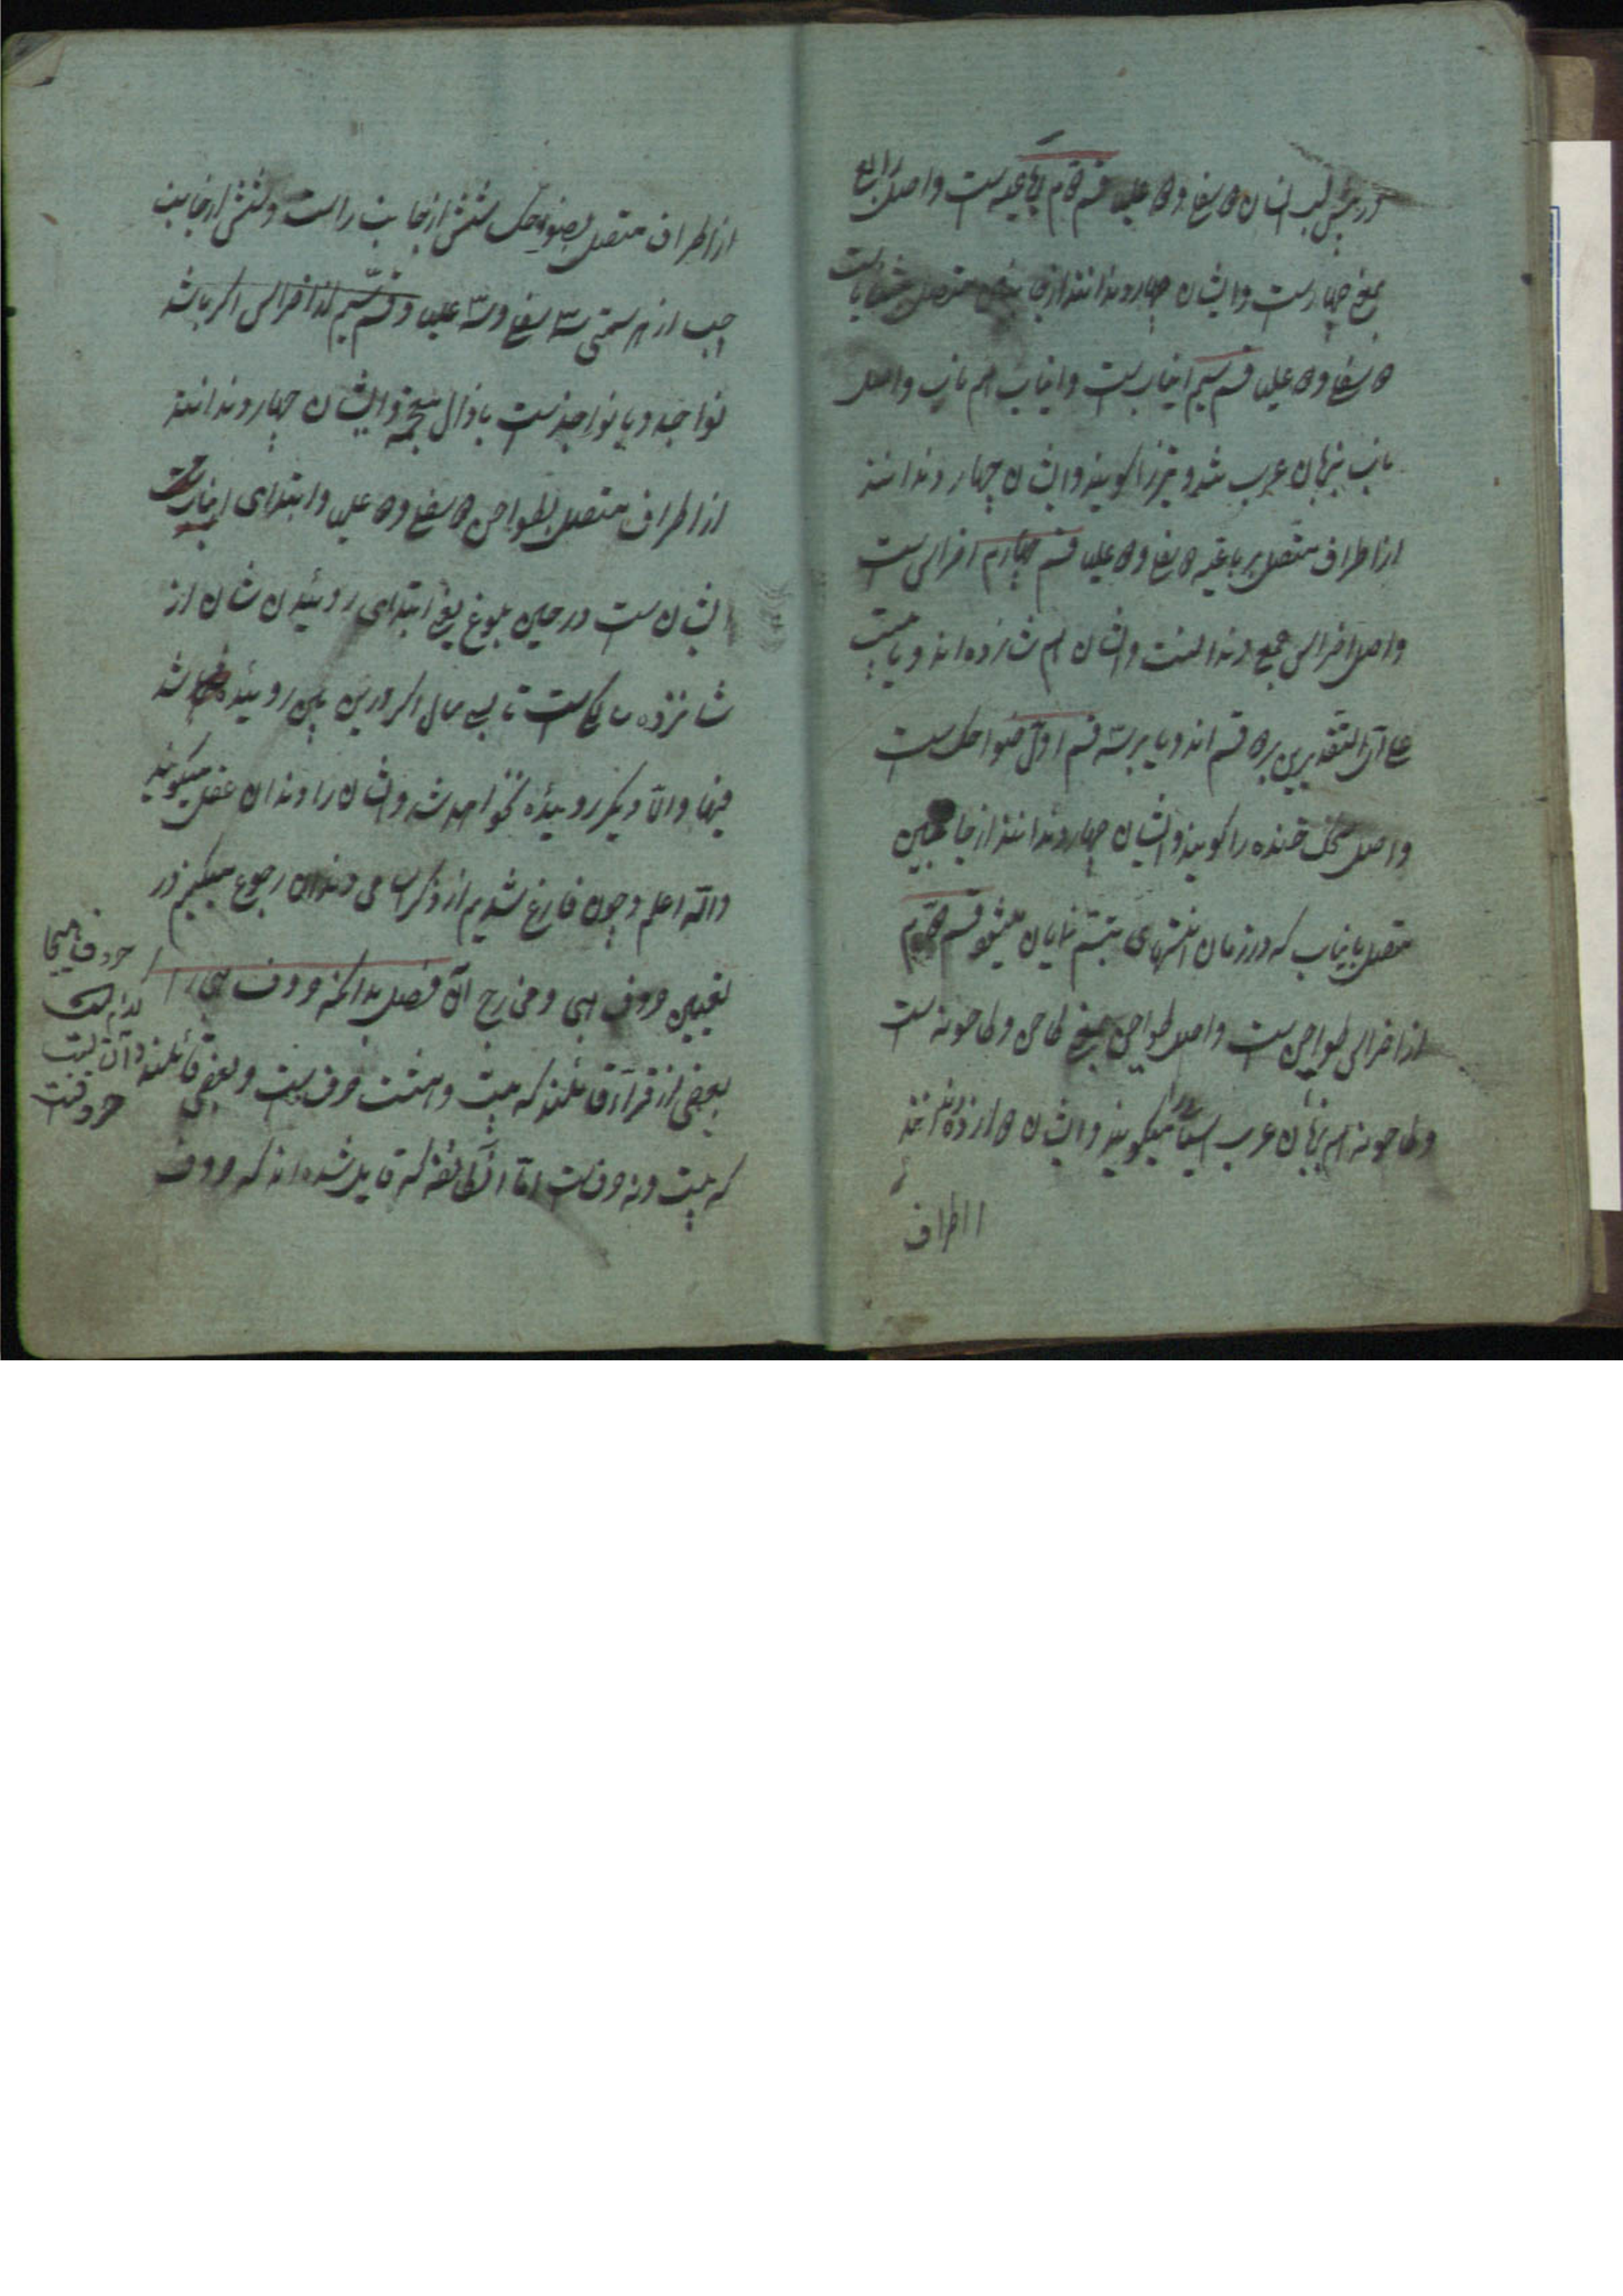 در پیش لب انسان ۲ سفلی و ۲ علیا قسم دوم رباعیه است و اصل رابع
بمعنی چهارست و ایشان چهار دندانند از جانبین متصل بثنایاست
۲ سفلی و ۲ علیا قسم سیم انیاب ست و انیاب هم ناب و اصل
ناب بزبان عرب شد و تیز را کویند و ایشان چهار دندانند
از اطراف متصل برباعیه ۲ سفلی و ۲ علیا قسم چهارم اضراس ست
و اصل اضراس جمع دندانست و ایشان هم شانزده اند و یا بیست
علی التقدیرین بر ۲ قسم اند و یا بر سه قسم اول ضواحک ست
و اصل ضحک خنده را کویند و ایشان چهار دندانند از جانبین
متصل بانیاب که در زمان انتهای تبسم نمایان میشود قسم دوم
از اضراس طواحن ست و اصل طواحن جمع طاحن و طاحونه است
و طاحونه هم بزبان عرب آسیا را میکویند و ایشان دوازده دندانند
از اطراف
از اطراف متصل بضواحک شش از جانب راست و شش از جانب
چپ از هر سمتی ۳ سفلی و ۳ علیا و قسم سیم از اضراس اکر باشد
نواجد و یا نواجذست با ذال معجمه و ایشان چهار دندانند
از اطراف متصل بطواحن ۲ سفلی و ۲ علیا و ابتدای
ایشان ست در حین بلوغ یعنی ابتدای روئیدن شان از
شانزده سالکی است تا سی سال اکر در این بین روئیده باشد
فبها و الا دیکر روئیده نخواهد شد و ایشان را دندان عقل میکویند
والله اعلم و چون فارغ شدیم از ذکر اسامی دندان رجوع میکنیم در
تعیین حروف تهجی و مخارج آن فصل بدانکه حروف تهجی را
بعضی از قرآء قائلند که بیست و هشت حرف ست و بعضی قائلند
که بیست و نه حرف ست اما آن طائفه که قایل شده اند که حروف
حروف هیجا
و آن بیست